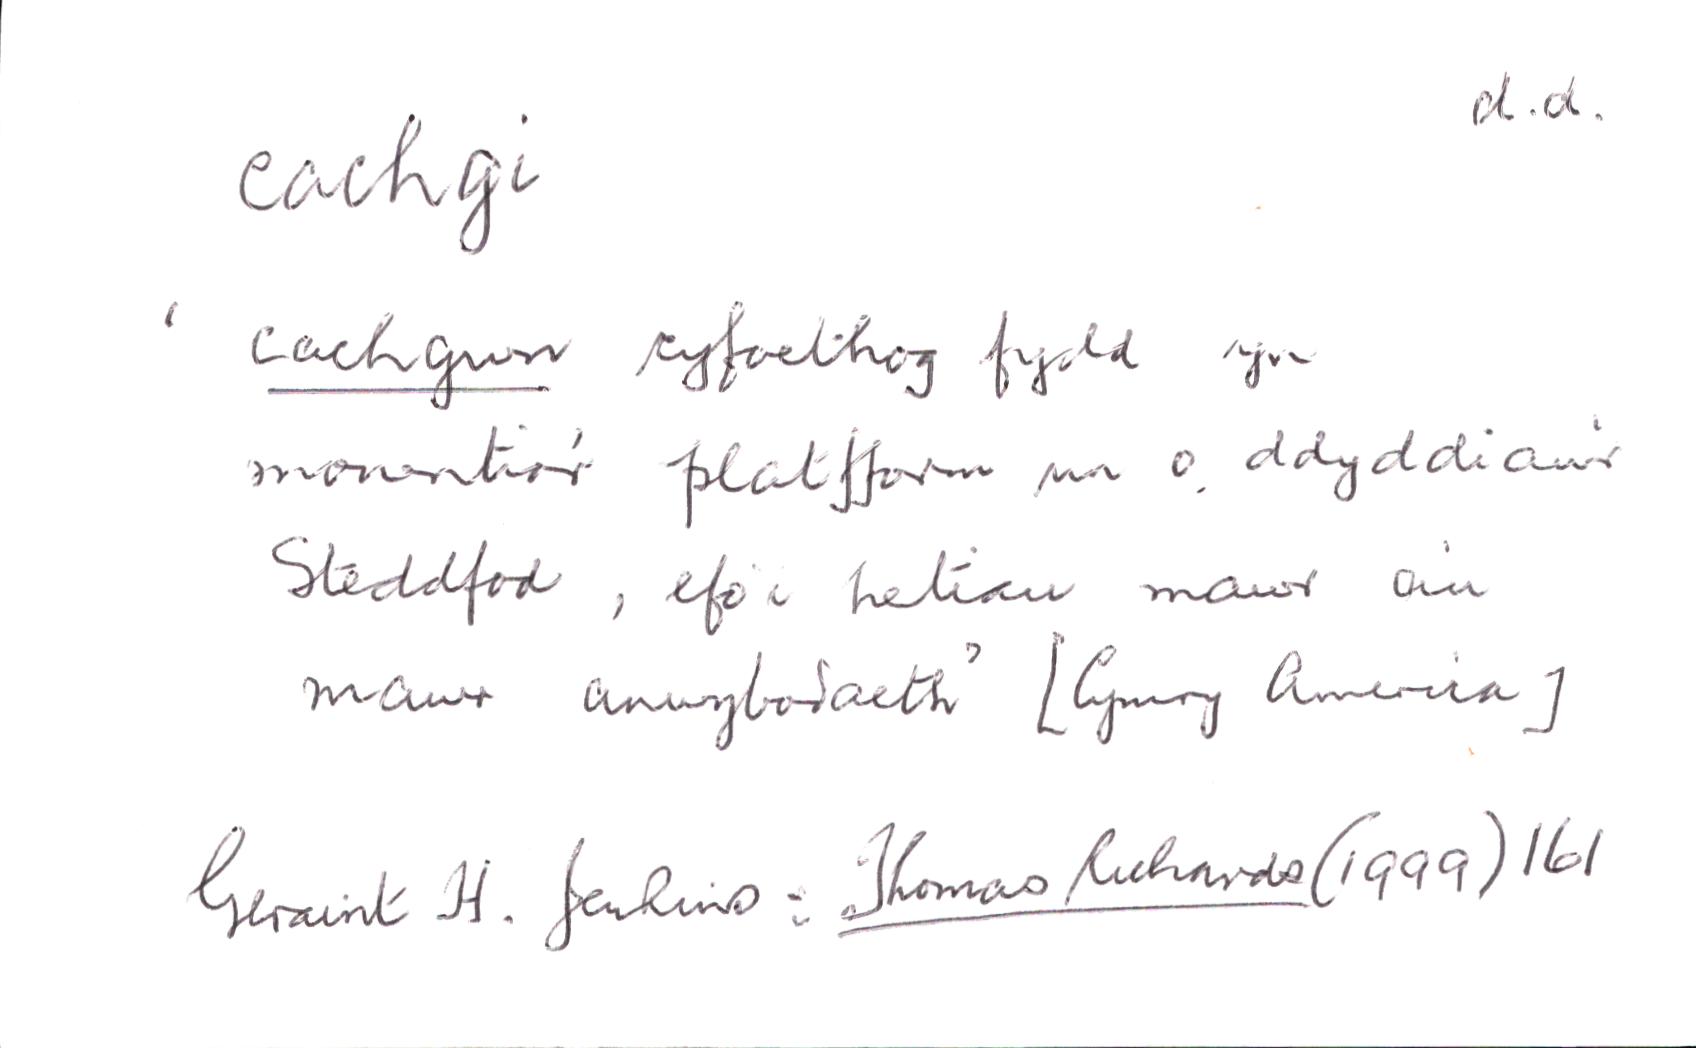 d.d.
cachgi
‘cachgwn cyfoethog fydd yn
monentio'r platfform un o ddyddiau'r
Steddfod, efo'i hetiau mawr a'u
mawr anwybodaeth’ [Cymry America]
Geraint H. Jenkins: Thomas Richards (1999) 161